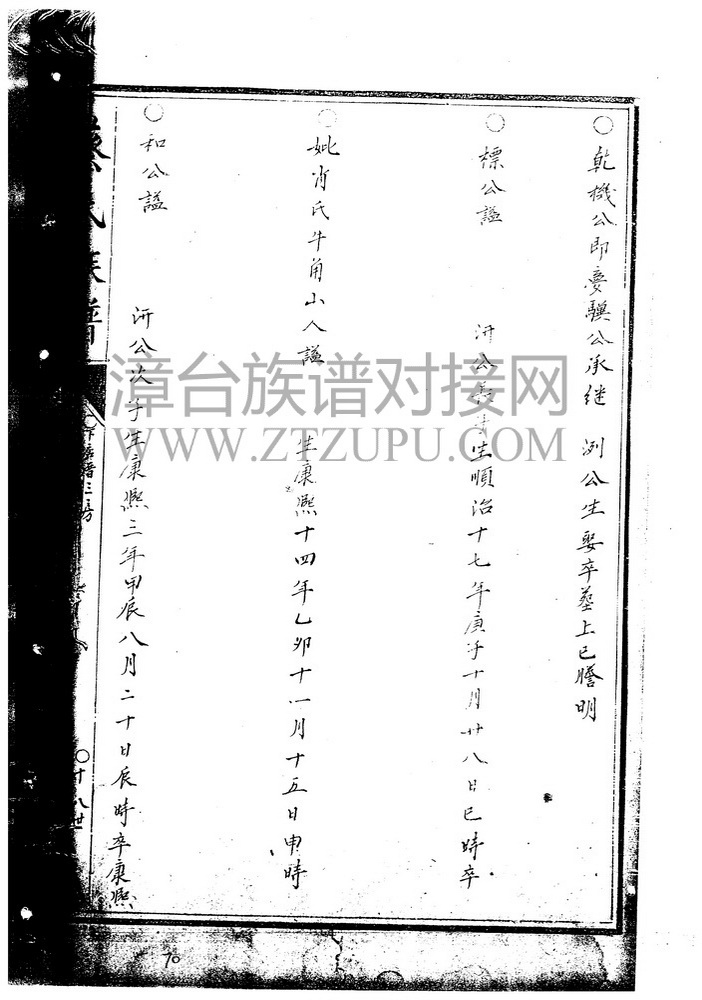 ○乾機公即夢騏公承继 洌公生娶卒墓上已謄明
○標公謚 汧公長子生順治十七年庚子十月廿八日巳時卒
○妣肖氏牛角山人謚 生康熙十四年乙卯十一月十五日申時
○和公謚 汧公次子生康熙三年甲辰八月二十日辰時卒康熙
氏族譜
三房
○十八世
漳台族谱对接网
WWW.ZTZUPU.COM
70